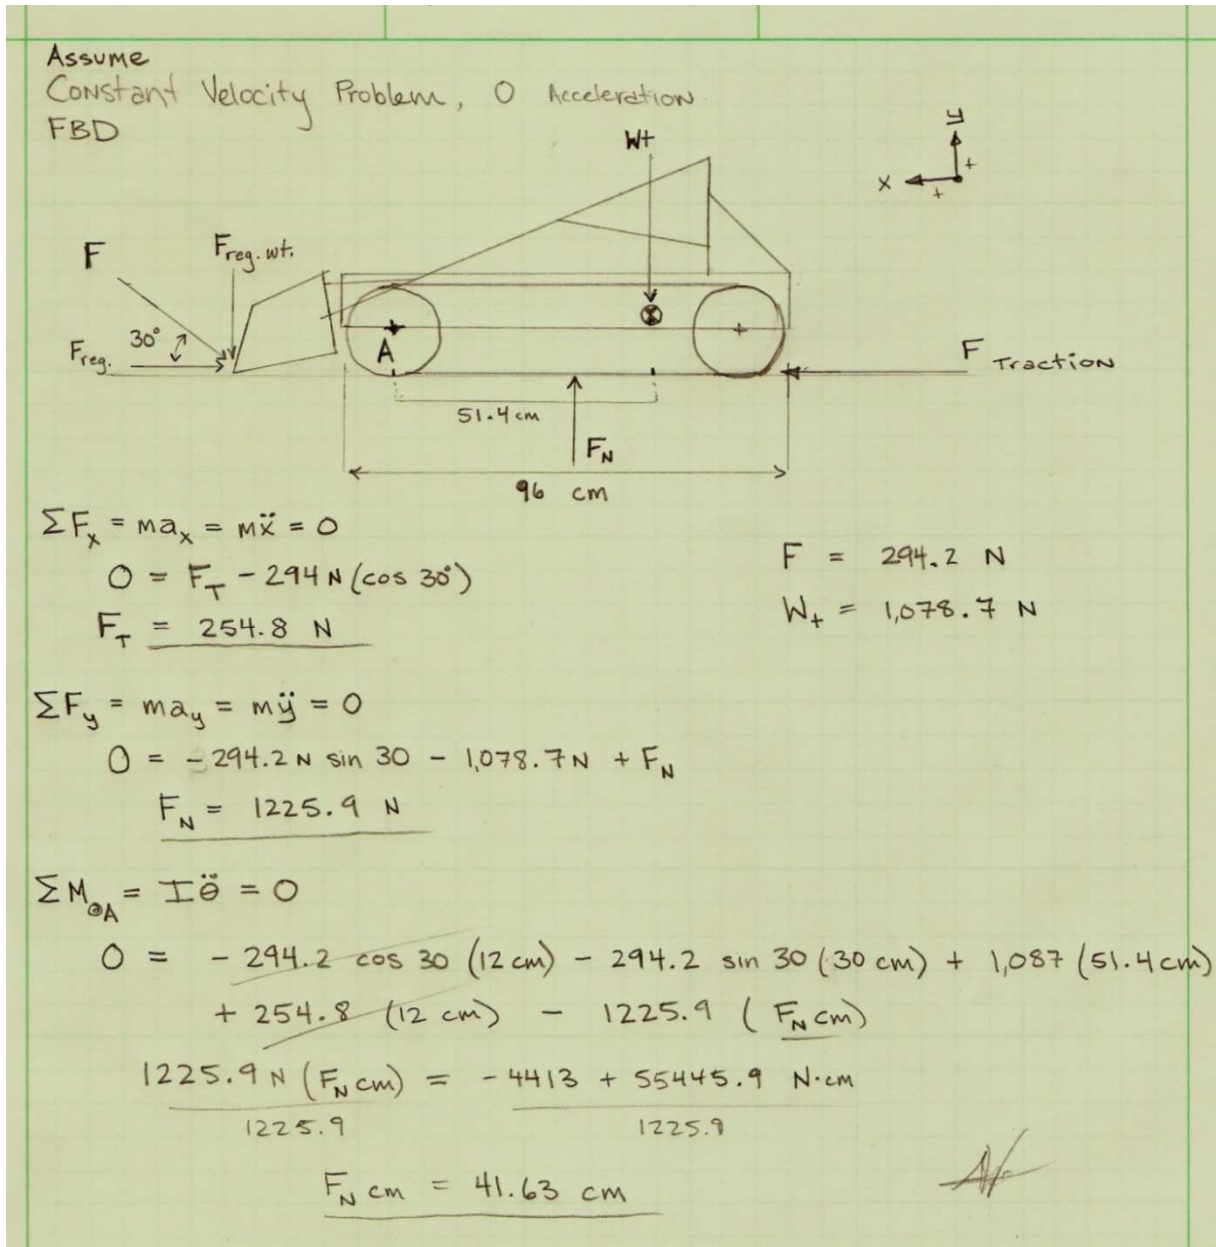 Assume
Constant Velocity Problem, 0 Acceleration.
FBD
Wt
y
+
x
+
F
F reg. wt.
30°
F reg.
A
F Traction
51.4 cm
F_N
96 cm
ΣF_x = ma_x = mẍ = 0
0 = F_T - 294 N (cos 30°)
F_T = 254.8 N
F = 294.2 N
W_t = 1,078.7 N
ΣF_y = ma_y = mÿ = 0
0 = - 294.2 N sin 30 - 1,078.7 N + F_N
F_N = 1225.9 N
ΣM_@A = Iθ̈ = 0
0 = - 294.2 cos 30 (12 cm) - 294.2 sin 30 (30 cm) + 1,087 (51.4 cm)
+ 254.8 (12 cm) - 1225.9 (F_N cm)
1225.9 N (F_N cm) = -4413 + 55445.9 N·cm
1225.9 1225.9
F_N cm = 41.63 cm